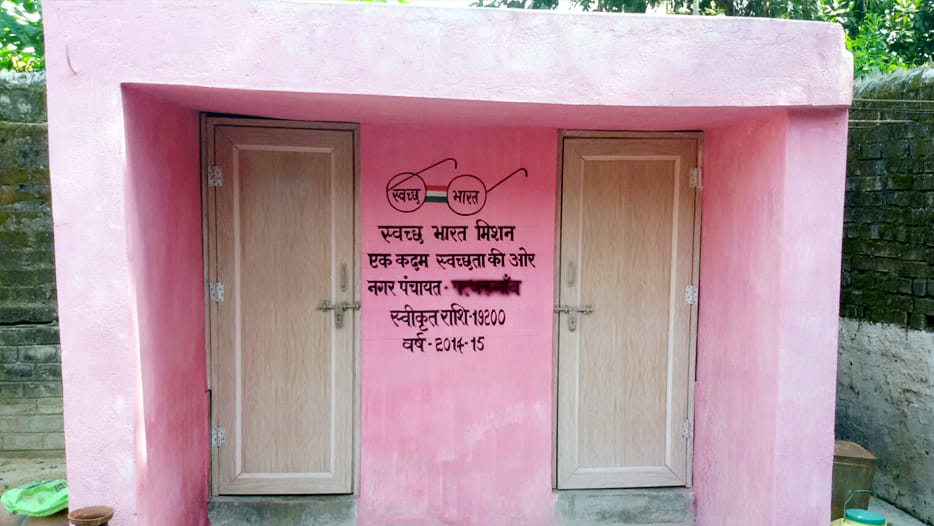 स्वच्छ भारत
स्वच्छ भारत मिशन
एक कदम स्वच्छता की ओर
नगर पंचायत -
स्वीकृत राशि-19200
वर्ष - २०14-15